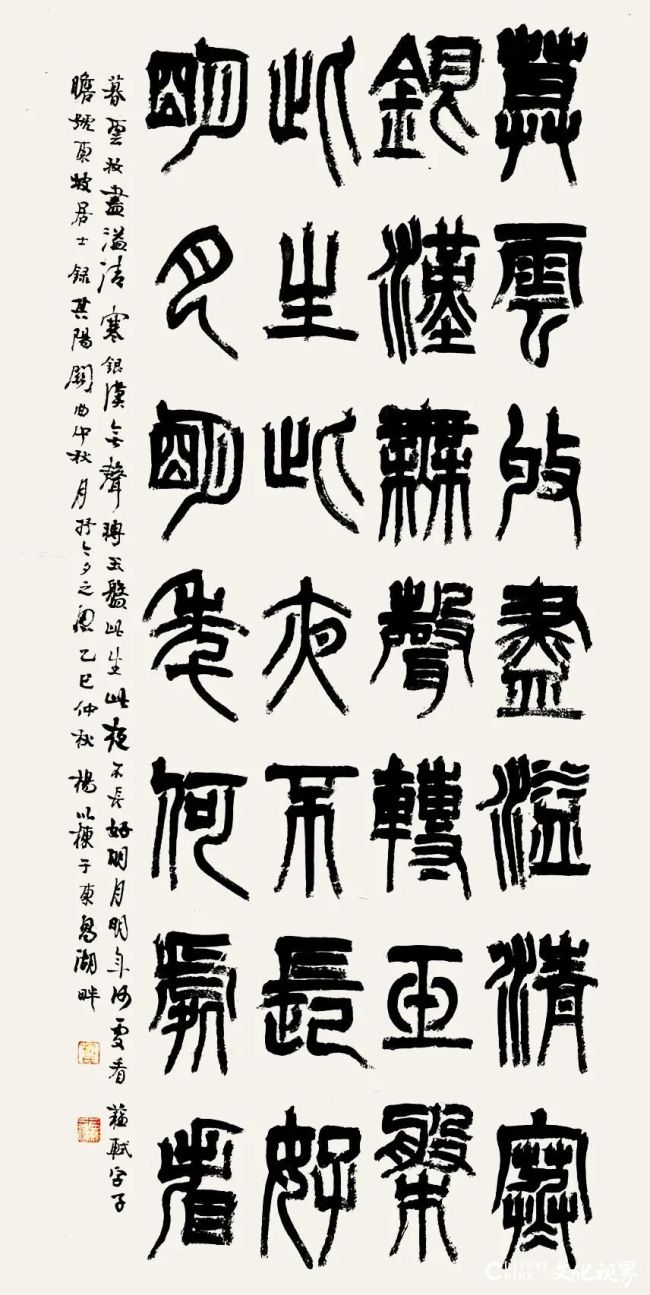 莫雲收盡溢清寒
銀漢無聲轉玉槃
此生此夜不長好
明月明年何處看
暮雲收盡溢清寒銀漢無聲轉玉盤此生此夜不長好明月明年何處看蘇軾字子
瞻號東坡居士錄其陽關曲仲秋月抒今夕之興乙巳仲秋楊以棟于東昌湖畔
CULTURE
CHINA 文化视界